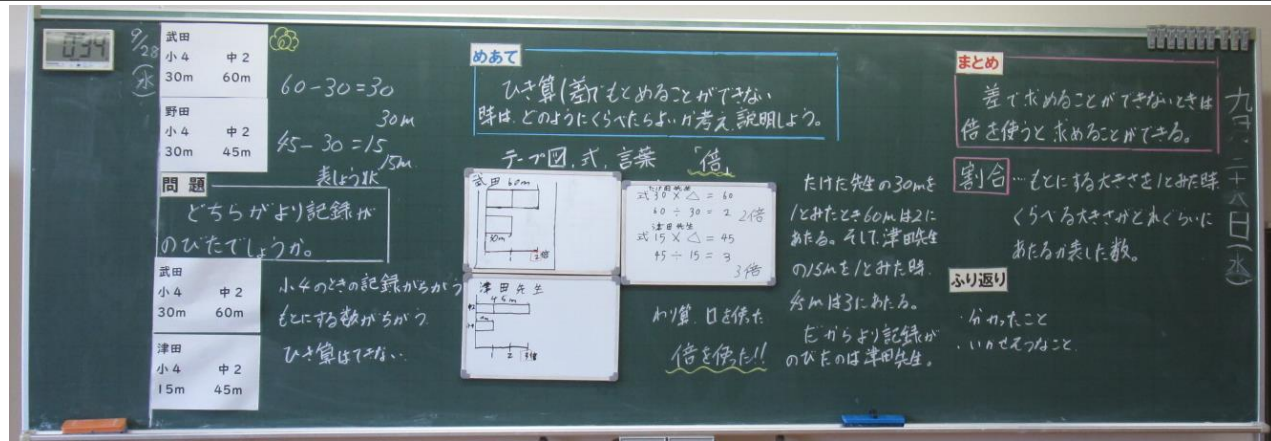 034
9/28
(水)
武田
小4 中2
30m 60m
野田
小4 中2
30m 45m
60-30=30
30m
45-30=15
15m
問題
どちらがより記録が
のびたでしょうか。
武田
小4 中2
30m 60m
津田
小4 中2
15m 45m
小4のときの記録がちがう
もとにする数がちがう
ひき算はできない
めあて
ひき算(差)でもとめることができない
時は、どのようにくらべたらよいか考え、説明しよう。
テープ図、式、言葉 「倍」
武田 60m
30m
1 2倍
式30×△=60
60÷30=2 2倍
津田先生
式15×△=45
45÷15=3
3倍
津田先生
45m
1 2 3倍
わり算、□を使った
倍を使った!!
たけた先生の30mを
1とみたとき60mは2に
あたる。そして津田先生
の15mを1とみた時、
45mは3にあたる。
だからより記録が
のびたのは津田先生。
まとめ
差で求めることができないときは
倍を使うと求めることができる。
割合…もとにする大きさを1とみた時
くらべる大きさがどれぐらいに
あたるか表した数。
ふり返り
・分かったこと
・いかせそうなこと
九月二十八日(水)